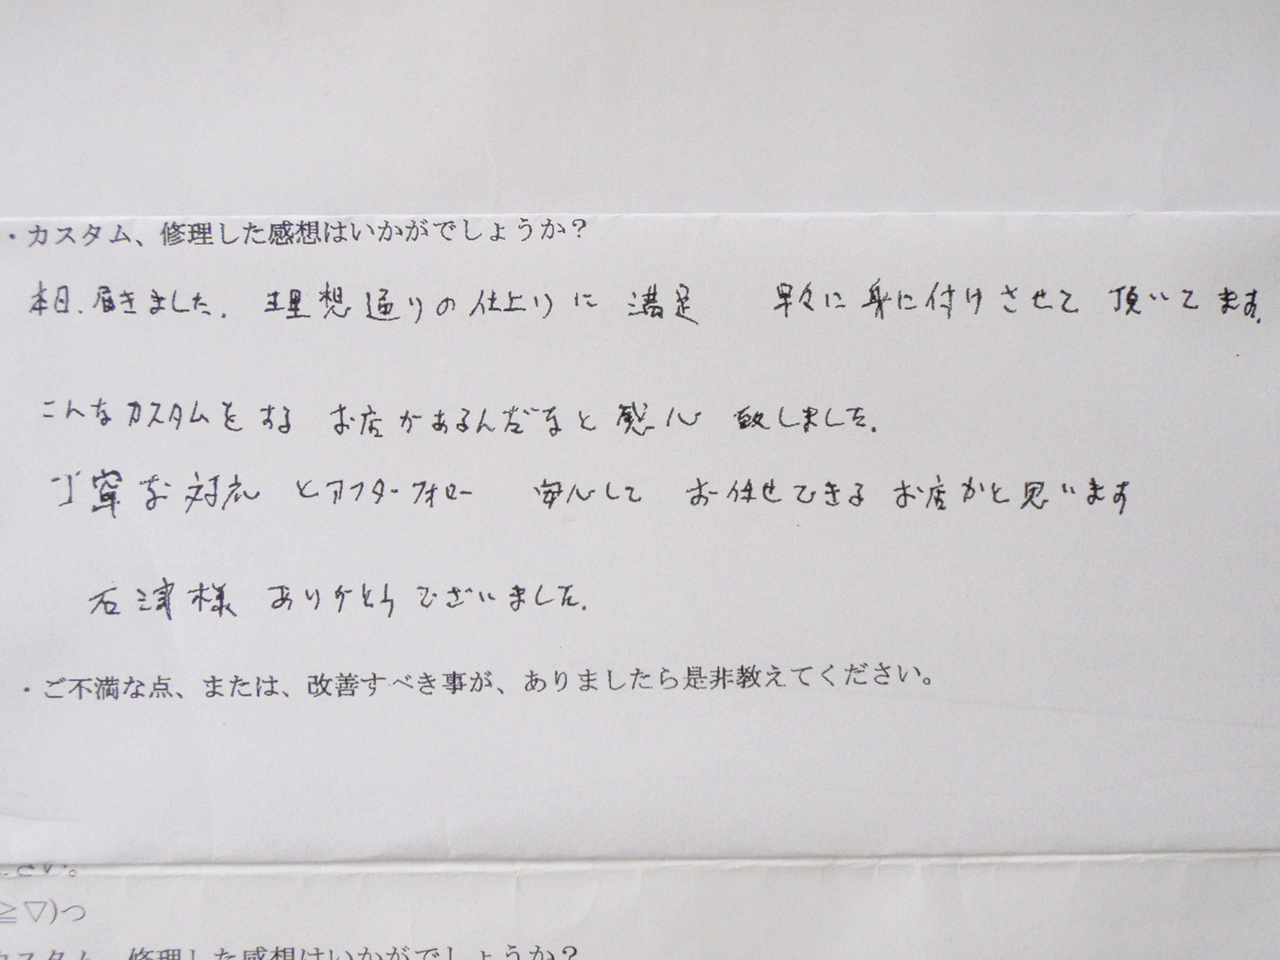 ・カスタム、修理した感想はいかがでしょうか？
本日、届きました。理想通りの仕上りに満足 早々に身に付けさせて頂いてます。
こんなカスタムをするお店があるんだなと感心致しました。
丁寧な対応とアフターフォロー 安心してお任せできるお店かと思います
石津様 ありがとうございました。
・ご不満な点、または、改善すべき事が、ありましたら是非教えてください。
≧▽)つ
カスタム、修理した感想はいかがでしょうか？